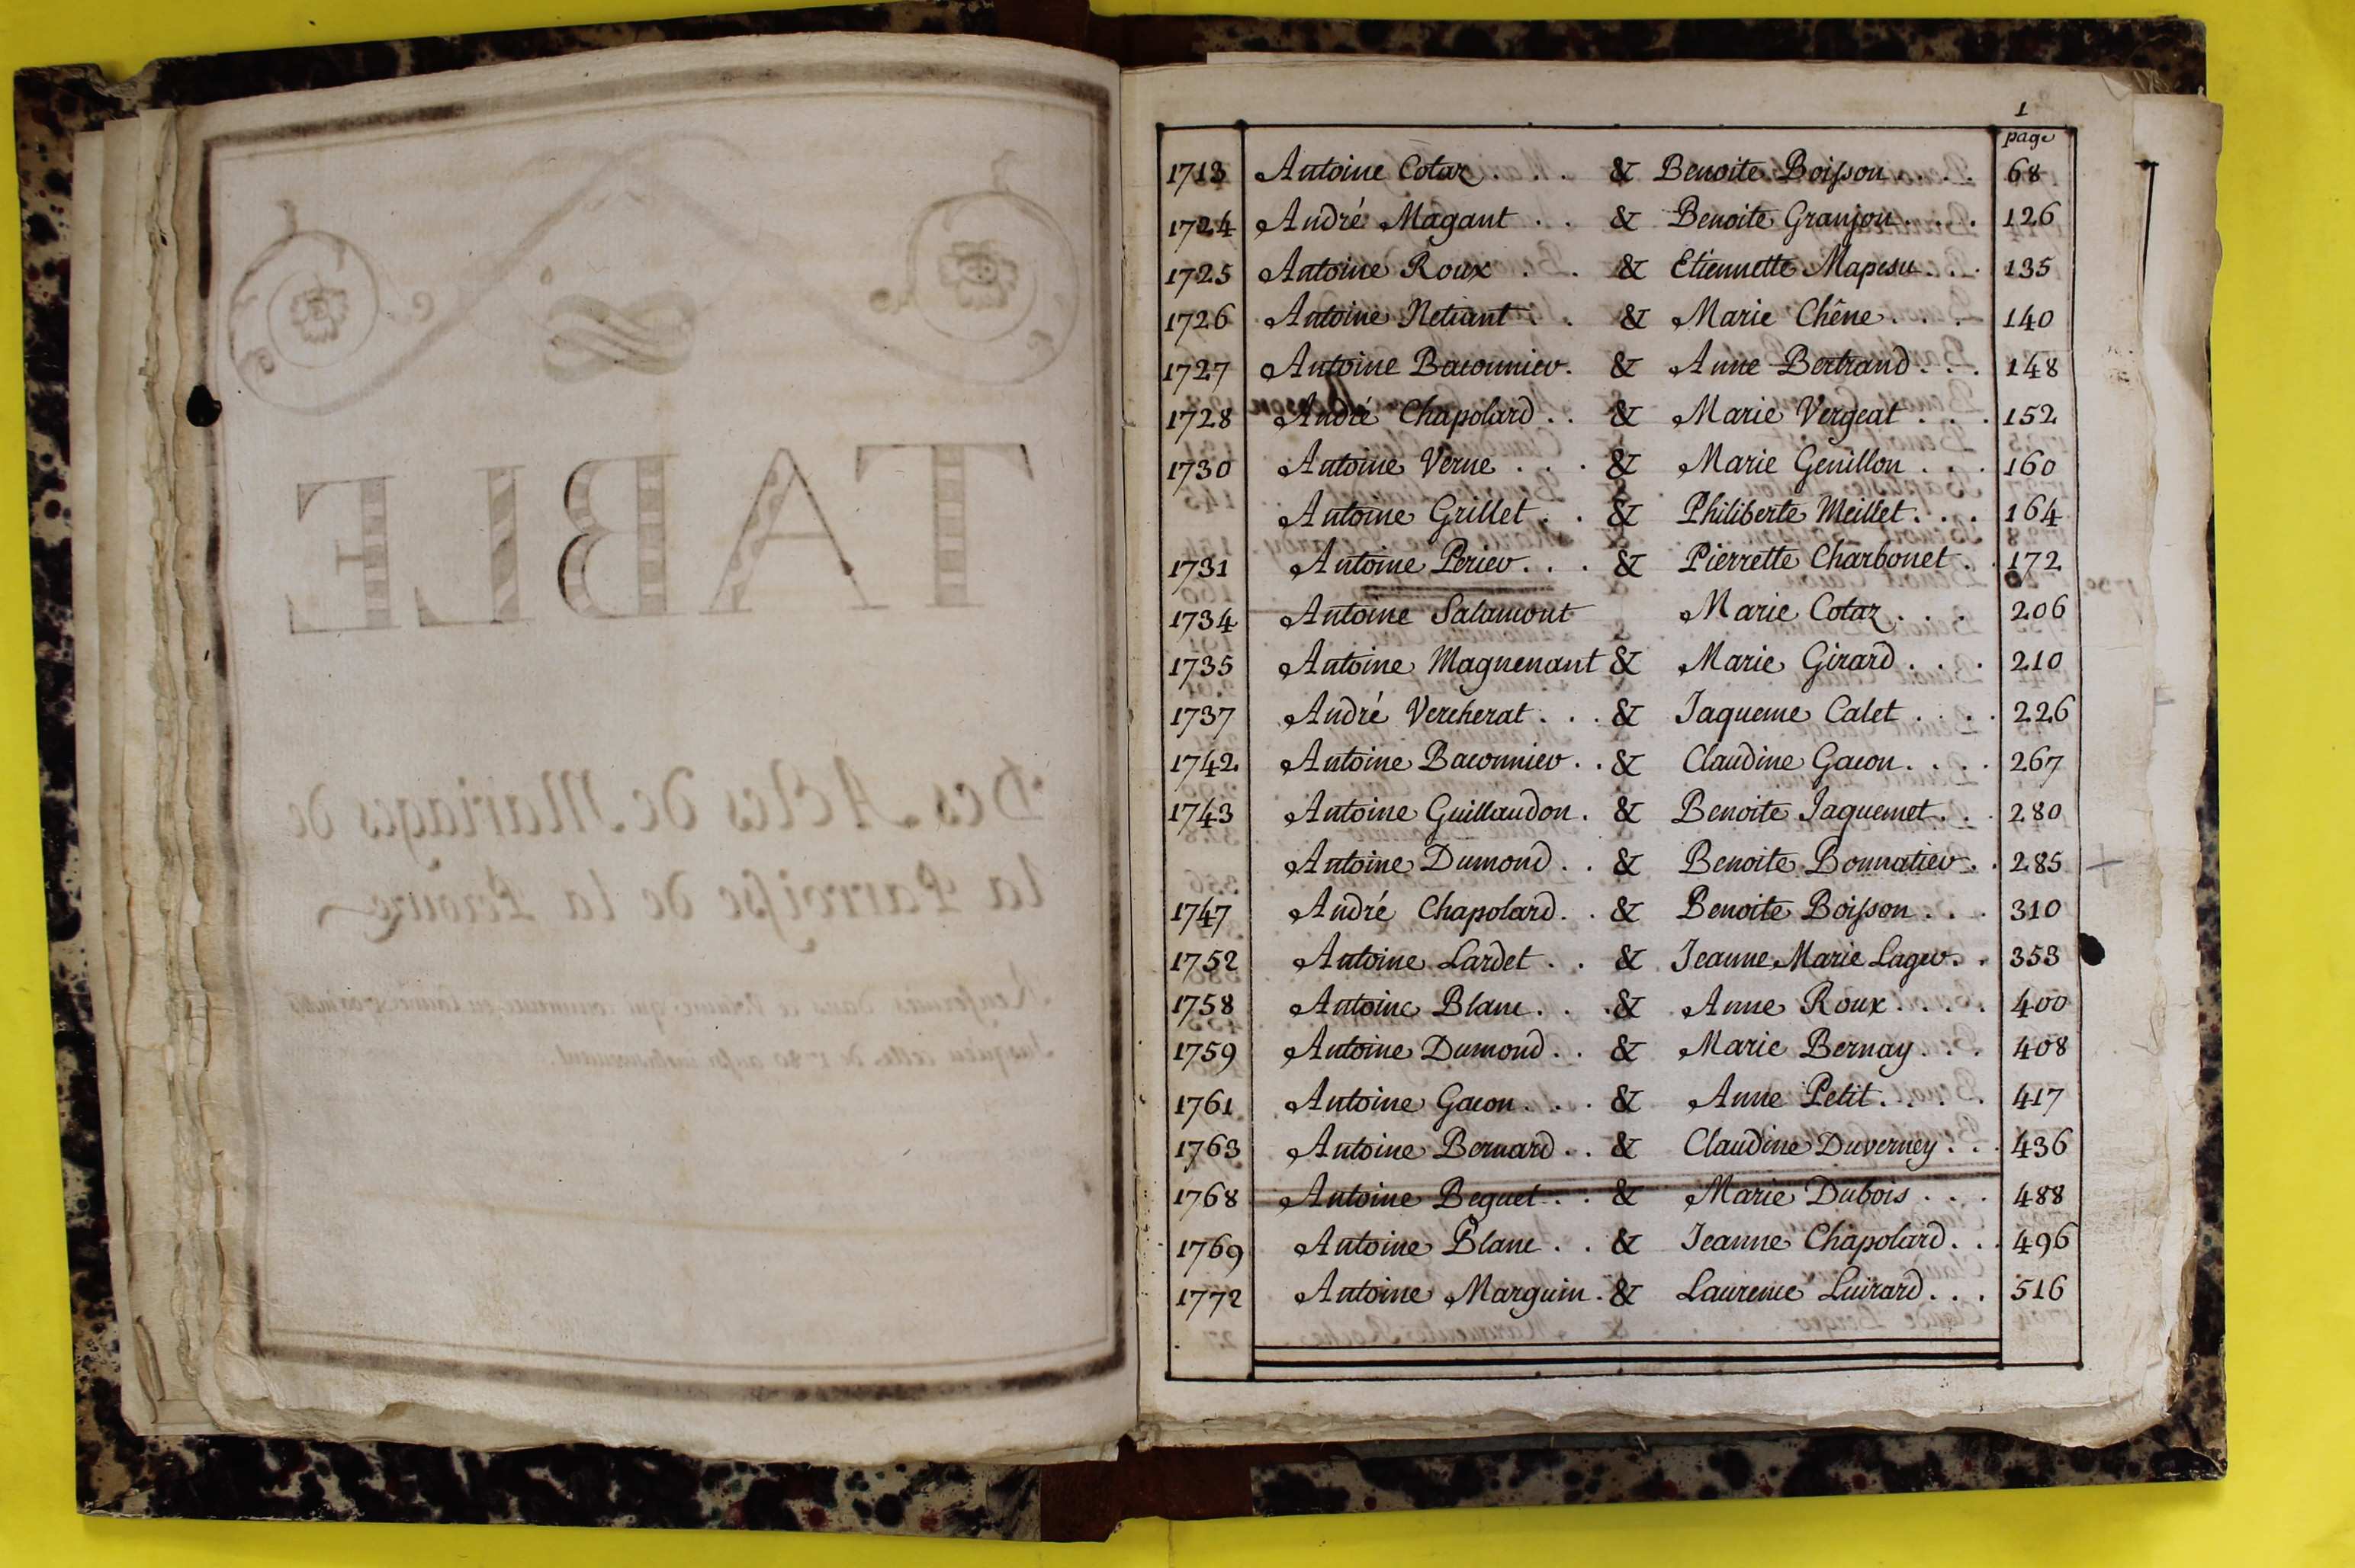 TABLE
Des Actes de Mariages de
la Parroisse de la Peroure
Renfermés dans ce Volume qui commence en
Jusqu'en celles de 1780 aussi inclusivement.
1
page
1713 Antoine Cotaz . . . & Benoite Boisson . . . . 68
1724 André Magant . . & Benoite Granjon . . . . 126
1725 Antoine Roux . . . & Etiennette Mapesu . . . 135
1726 Antoine Netiant . . & Marie Chêne . . . 140
1727 Antoine Baconnier . & Anne Bertrand . . . 148
1728 André Chapolard . . & Marie Vergeat . . . 152
1730 Antoine Verne . . . & Marie Genillon . . . 160
Antoine Grillet . . & Philiberte Meillet . . . 164
1731 Antoine Perier . . . & Pierrette Charbonet . . 172
1734 Antoine Salamont Marie Cotaz . . . 206
1735 Antoine Magnenant & Marie Girard . . . 210
1737 André Vercherat . . . & Jaqueme Calet . . . . 226
1742 Antoine Baconnier . . & Claudine Gacon . . . . 267
1743 Antoine Guillaudon . & Benoite Jaquemet . . . 280
Antoine Dumond . . & Benoite Bonnatier . . 285
1747 André Chapolard . . & Benoite Boisson . . . 310
1752 Antoine Lardet . . & Jeanne Marie Lager . . 353
1758 Antoine Blanc . . . & Anne Roux . . . . 400
1759 Antoine Dumond . . & Marie Bernay . . . 408
1761 Antoine Gacon . . . & Anne Petit . . . . 417
1763 Antoine Bernard . . & Claudine Duverney . . . 436
1768 Antoine Beguet . . & Marie Dubois . . . 488
1769 Antoine Blanc . . & Jeanne Chapolard . . . 496
1772 Antoine Marguin . & Laurence Luirard . . . 516